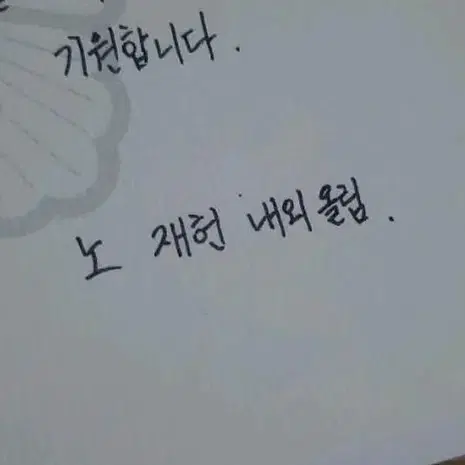 기원합니다.
노 재헌 내외 올림.